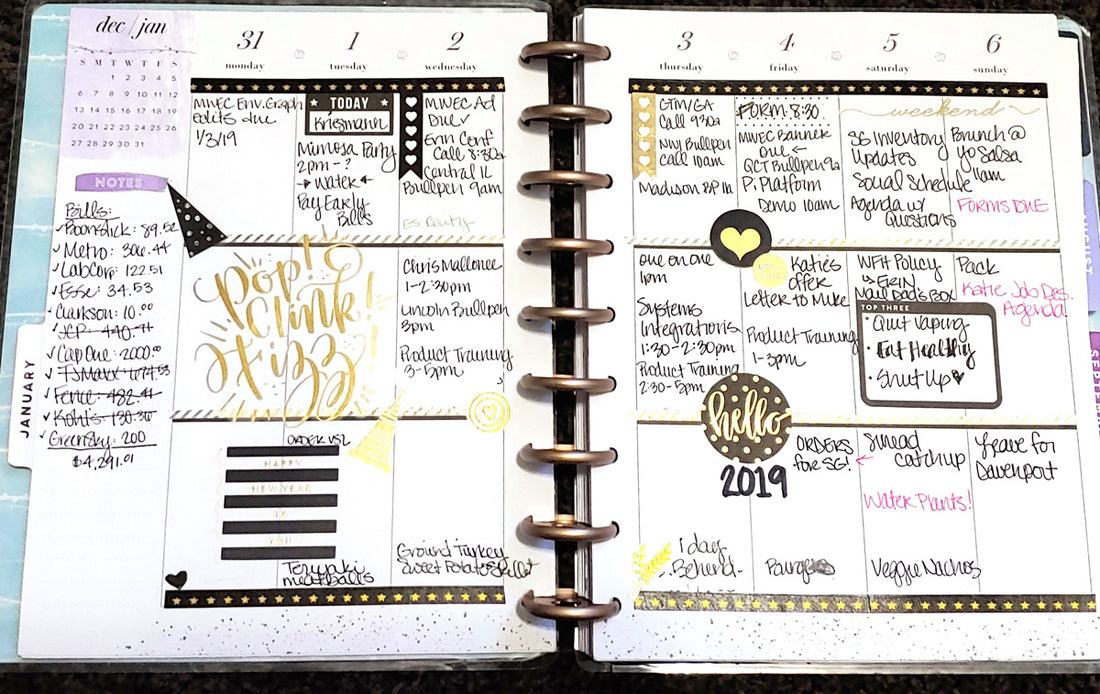 dec / jan
S M T W T F S
1 2 3 4 5
6 7 8 9 10 11 12
13 14 15 16 17 18 19
20 21 22 23 24 25 26
27 28 29 30 31
NOTES
Bills:
✓ Boonstick: 89.52
✓ Metro: 306.44
✓ LabCorp: 122.51
✓ Esse: 34.53
✓ Clarkson: 10.00
✓ JCP: 440.71
✓ Cap One: 2000.00
✓ TJ Maxx
✓ Fence: 482.41
✓ Kohl's: 130.36
✓ Greensky: 200
$4,291.01
JANUARY
31
monday
MWEC Env. Graph
edits due
1/3/19
ORDER VSL
HAPPY
NEW YEAR
TO
YOU
1
tuesday
TODAY
Kriegmann
Mimosa Party
2pm - ?
→ Water ←
Pay Early
Bills
Pop!
Clink!
Fizz!
Teriyaki
meatballs
2
wednesday
MWEC Ad
Due ✓
Erin Conf
Call 8:30a
Central IL
Bullpen 9am
Chris Mallonee
1-2:30pm
Lincoln Bullpen
3pm
Product Training
3-5pm
Ground Turkey
Sweet Potato Skillet
3
thursday
GTM/GA
Call 930a
NW Bullpen
Call 10am
Madison BP 11a
one on one
1pm
Systems
Integrations
1:30-2:30pm
Product Training
2:30-5pm
hello
2019
1 day
Behind
4
friday
FORM 8:30
MWEC Banner
Due ←
QCT Bullpen 9a
Pi Platform
Demo 10am
Katie's
Offer
Letter to Mike
Product Training
1-3pm
ORDERS
for SG!
5
saturday
weekend
SG Inventory
Updates
Social Schedule
Agenda w/
Questions
WFH Policy
↳ Erin
Mail Dad's Box
TOP THREE
• Quit Vaping
• Eat Healthy
• Shut Up ♥
Smead
catchup
Water Plants!
Veggie Nachos
6
sunday
Brunch @
Yo Salsa
11am
FORMS DUE
Pack
Katie Job Des.
Agenda
Leave for
Davenport